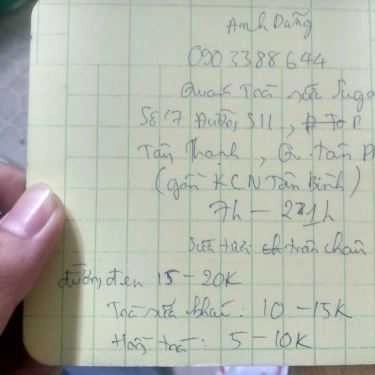 Anh Dũng
090 3388 644
Quán Trà sữa Suga
Số 17 Đường S11, P
Tây Thạnh, Q. Tân Ph
(gần KCN Tân Bình)
7h - 21h
Sữa tươi trân châu
đường đen 15 - 20K
Trà sữa khác: 10 - 15K
Hồng trà: 5 - 10K